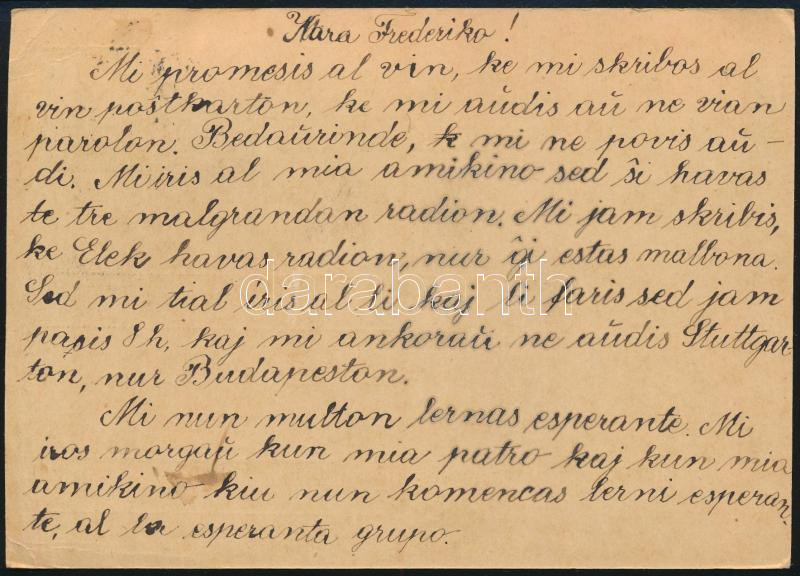 Kara Frederiko!
Mi promesis al vin, ke mi skribos al
vin postkarton, ke mi aŭdis aŭ ne vian
parolon. Bedaŭrinde, mi ne povis aŭ-
di. Mi iris al mia amikino sed ŝi havas
te tre malgrandan radion. Mi jam skribis,
ke Elek havas radion, nur ĝi estas malbona.
Sed mi tial iris al li kaj li faris sed jam
pasis 8 h, kaj mi ankoraŭ ne aŭdis Stuttgar-
ton, nur Budapeston.
Mi nun multon lernas esperante. Mi
iros morgaŭ kun mia patro kaj kun mia
amikino kiu nun komencas lerni esperan-
te, al la esperanta grupo.
darabanth.com